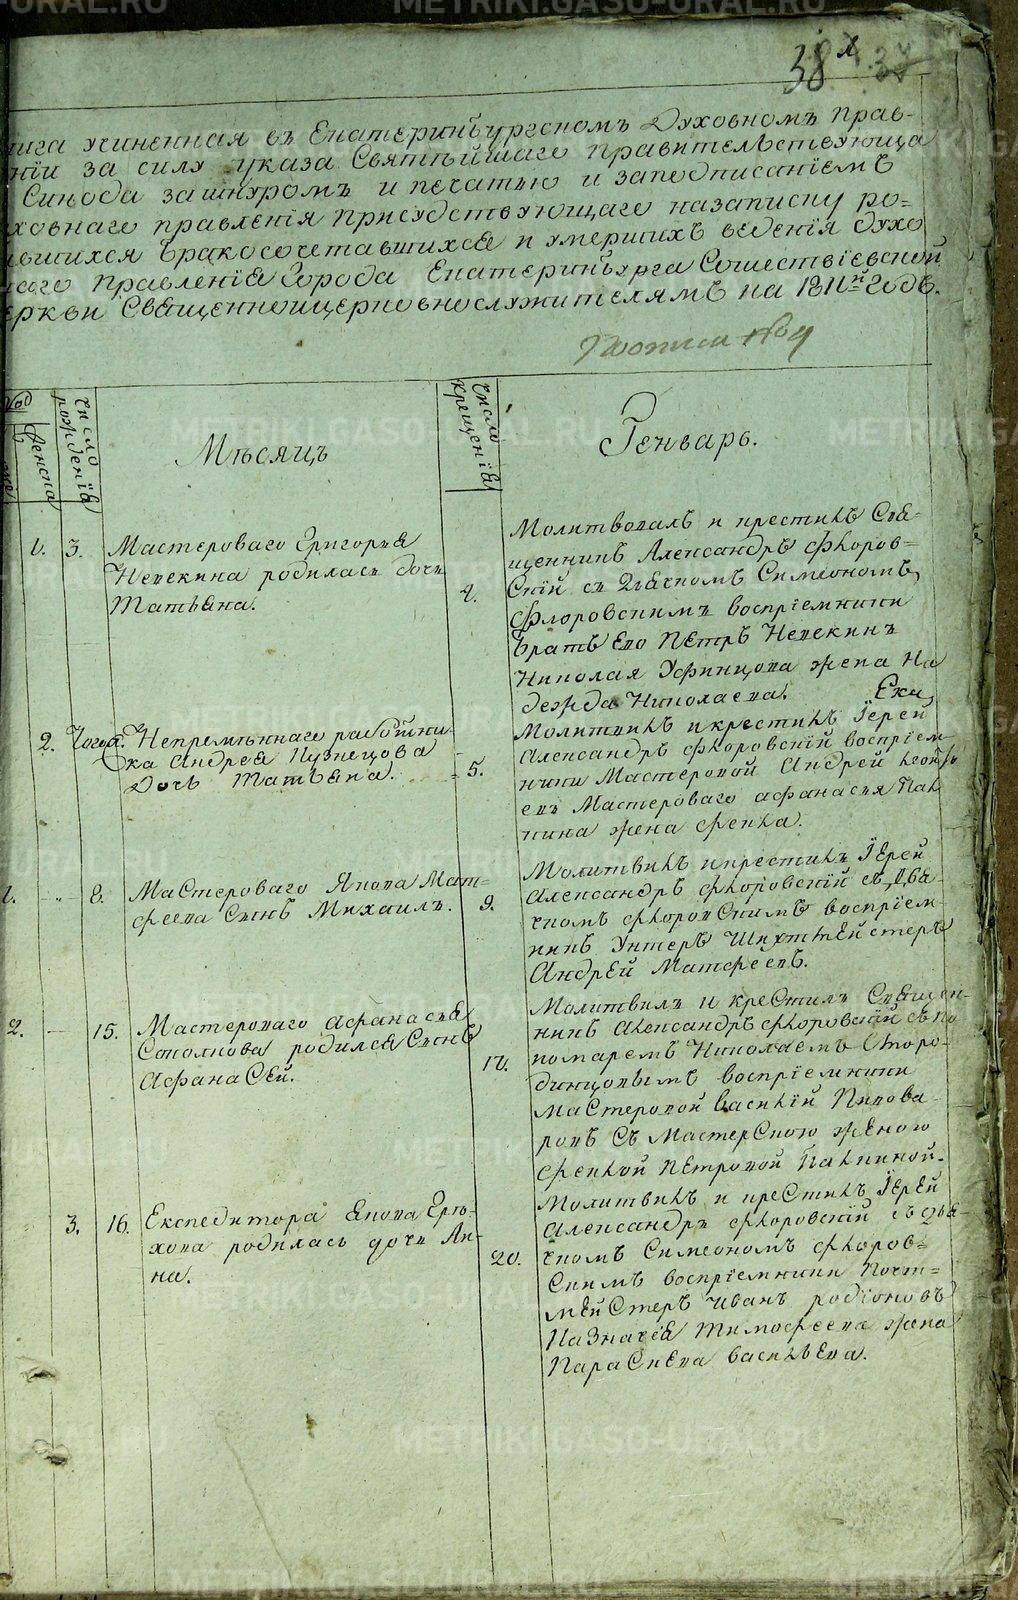 38
нига учиненная въ Екатеринбургскомъ Духовномъ прав-
нїи за силу указа Святѣйшаго правителствующа
Синода зашнуромъ и печатью и заподписанїемъ
ховнаго правленїя присудствующаго назаписку ро-
вшихся бракосочетавшихся и умершихъ веденїя духо
наго правленїя Города Екатеринбурга Сошествїевской
еркви Священноицерковнослужителямъ на 1811й годъ.
Женска
число рожденїя
Мѣсяцъ
число крещенїя
Генварь.
1. 3. Мастероваго Григорья
Невекина родилась дочь
Татьяна.
4.
Молитвовалъ и крестилъ Свя-
щенникъ Александръ Флоров-
скїй съ дьячкомъ Симеономъ
Флоровскимъ воспрїемники
братъ его Петръ Невекинъ
Николая Уфинцова жена На
дежда Николаева.
2. Тогоже. Непремѣннаго работни
ка Андрея Кузнецова
дочь Татьяна.
5.
Молитвилъ и крестилъ Їерей
Александръ Флоровскїй воспрїем
ники Мастеровой Андрей
Мастероваго Афанасья Пал
кина жена Фекла.
1. 8. Мастероваго Якова Мат-
феева сынъ Михаилъ.
9.
Молитвилъ и крестилъ Їерей
Александръ Флоровскїй съ дья-
чкомъ Флоровскимъ воспрїем-
никъ Унтеръ Шихтмейстеръ
Андрей Матфеевъ.
2. 15. Мастероваго Афанасья
Соколкова родился сынъ
Афанасей.
17.
Молитвилъ и крестилъ Священ-
никъ Александръ Флоровскїй съ по
номаремъ Николаемъ Сторо-
динцовымъ воспрїемники
Мастеровой Василїй Пивова-
ровъ съ Мастерскою женою
Феклой Петровой Палкиной.
3. 16. Експедитора Якова Ерю-
хова родилась дочь Ан-
на.
20.
Молитвилъ и крестилъ Їерей
Александръ Флоровскїй съ дья-
чкомъ Симеономъ Флоров-
скимъ воспрїемники Почт-
мейстеръ Иванъ Родїоновъ
Казначея Тимофеева жена
Параскева Васильева.
METRIKI.GASO-URAL.RU